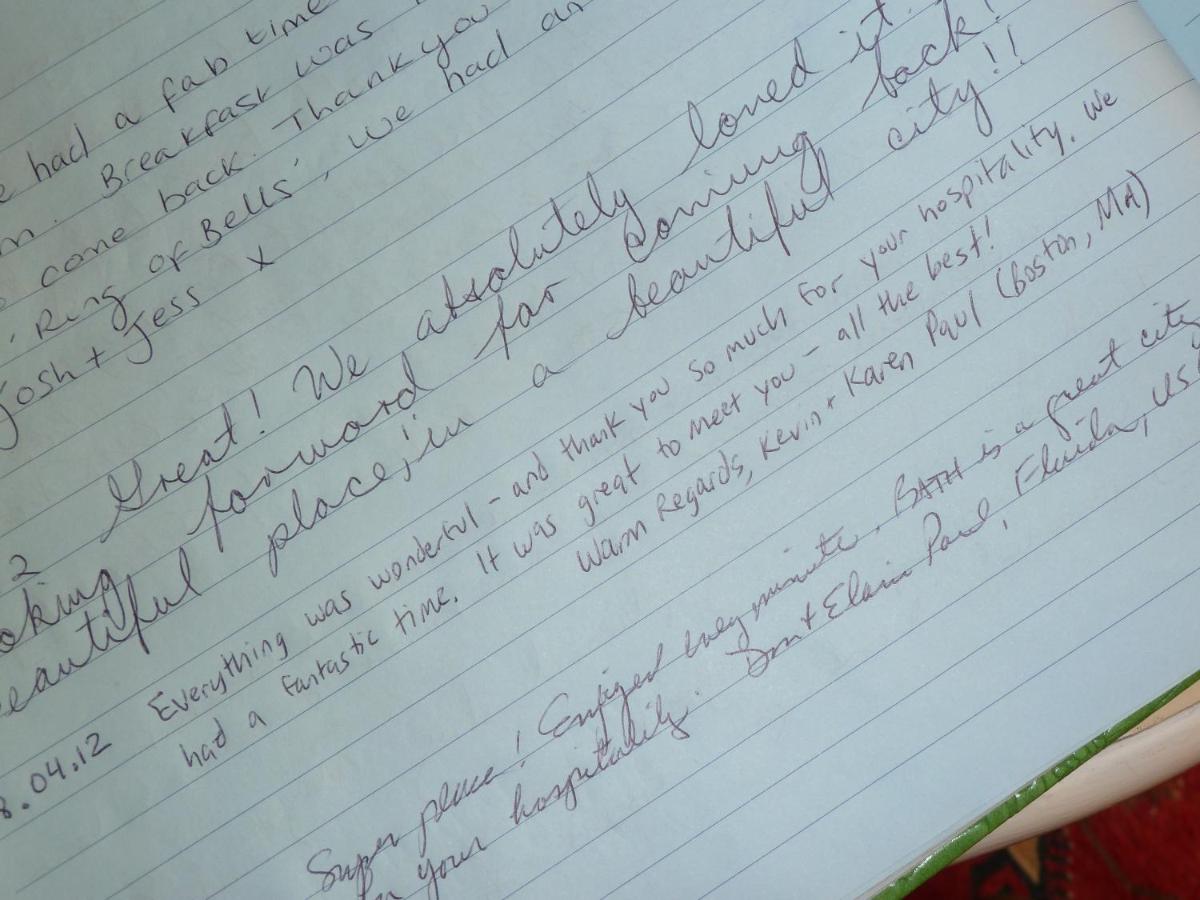 had a fab time
Breakfast was
come back. Thank you
Ring of Bells', we had an
Josh + Jess x
2 Great! We absolutely loved it.
forward for coming back!
beautiful place, in a beautiful city!!
.04.12 Everything was wonderful - and thank you so much for your hospitality. We
had a fantastic time. It was great to meet you - all the best!
Warm Regards, Kevin + Karen Paul (Boston, MA)
Super place! Enjoyed every minute. BATH is a great city
your hospitality. Don + Elain Paul, Florida, USA